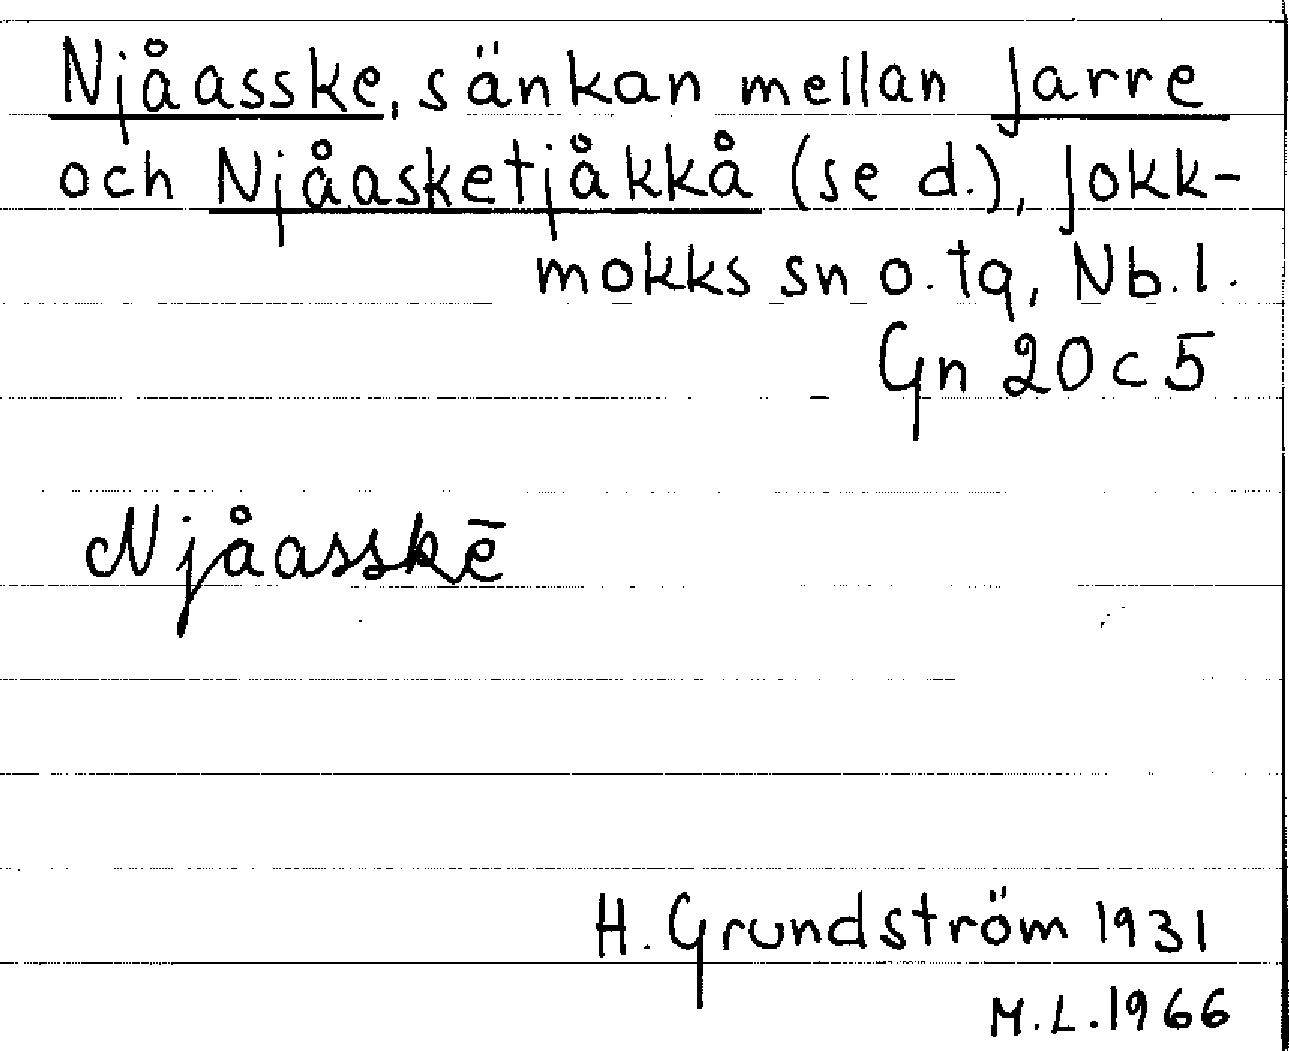 Njåasske, sänkan mellan Jarre
och Njåasketjåkkå (se d.), Jokk-
mokks sn o. tg, Nb. l.
Gn 20 c 5
Njåasskē
H. Grundström 1931
M. L. 1966